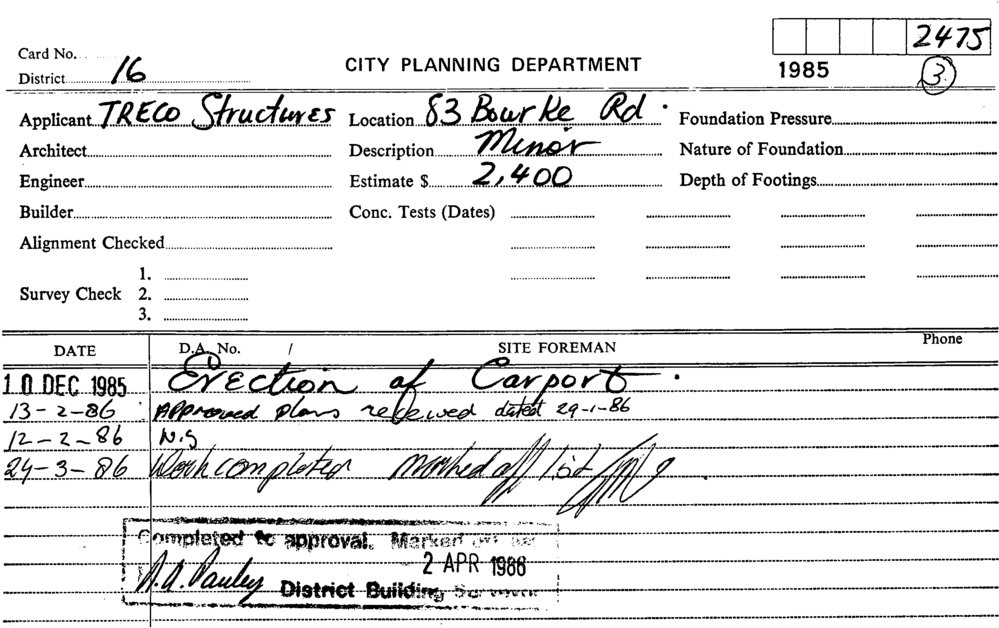 2475
Card No.
District 16
CITY PLANNING DEPARTMENT
1985
3
Applicant TRECO Structures Location 83 Bourke Rd. Foundation Pressure
Architect Description Minor Nature of Foundation
Engineer Estimate $ 2,400 Depth of Footings
Builder Conc. Tests (Dates)
Alignment Checked
1.
Survey Check 2.
3.
DATE D.A. No. / SITE FOREMAN Phone
10 DEC 1985 Erection of Carport.
13-2-86 Approved plans received dated 29-1-86
12-2-86 N.S
24-3-86 Work completed marked off list
Completed to approval. Marked off
2 APR 1986
District Building Surveyor